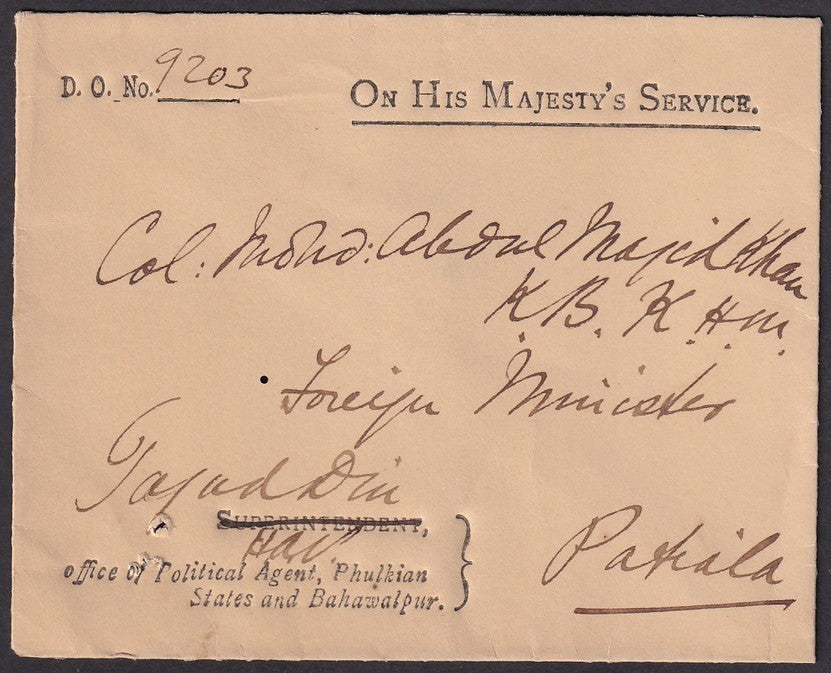 D. O. No. 9203
ON HIS MAJESTY'S SERVICE.
Col: Mohd: Abdul Majid Khan
K. B. K. H. M.
Foreign Minister
Tajud Din
SUPERINTENDENT,
office of Political Agent, Phulkian
States and Bahawalpur.
Patiala